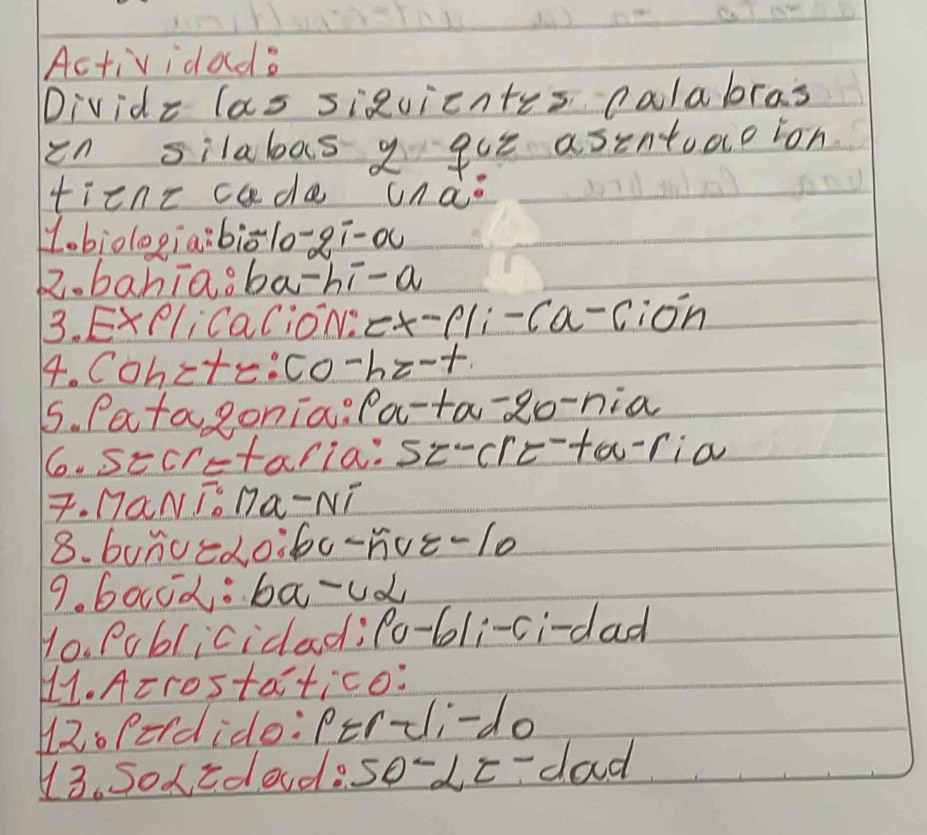 Actividad:
Divide las siguientes palabras
en silabas y que asentuacion
tiene cada una:
1. biología: bio-lo-gí-a
2. bahía: ba-hí-a
3. Explicación: ex-pli-ca-ción
4. Cohete: co-he-t
5. Patagonia: Pa-ta-go-nia
6. secretaria: se-cre-ta-ria
7. Maní: Ma-Ní
8. buñuelo: bu-ñue-lo
9. baúl: ba-ul
10. Publicidad: Pu-bli-ci-dad
11. Aerostático:
12. Perdido: Per-di-do
13. Soledad: so-le-dad